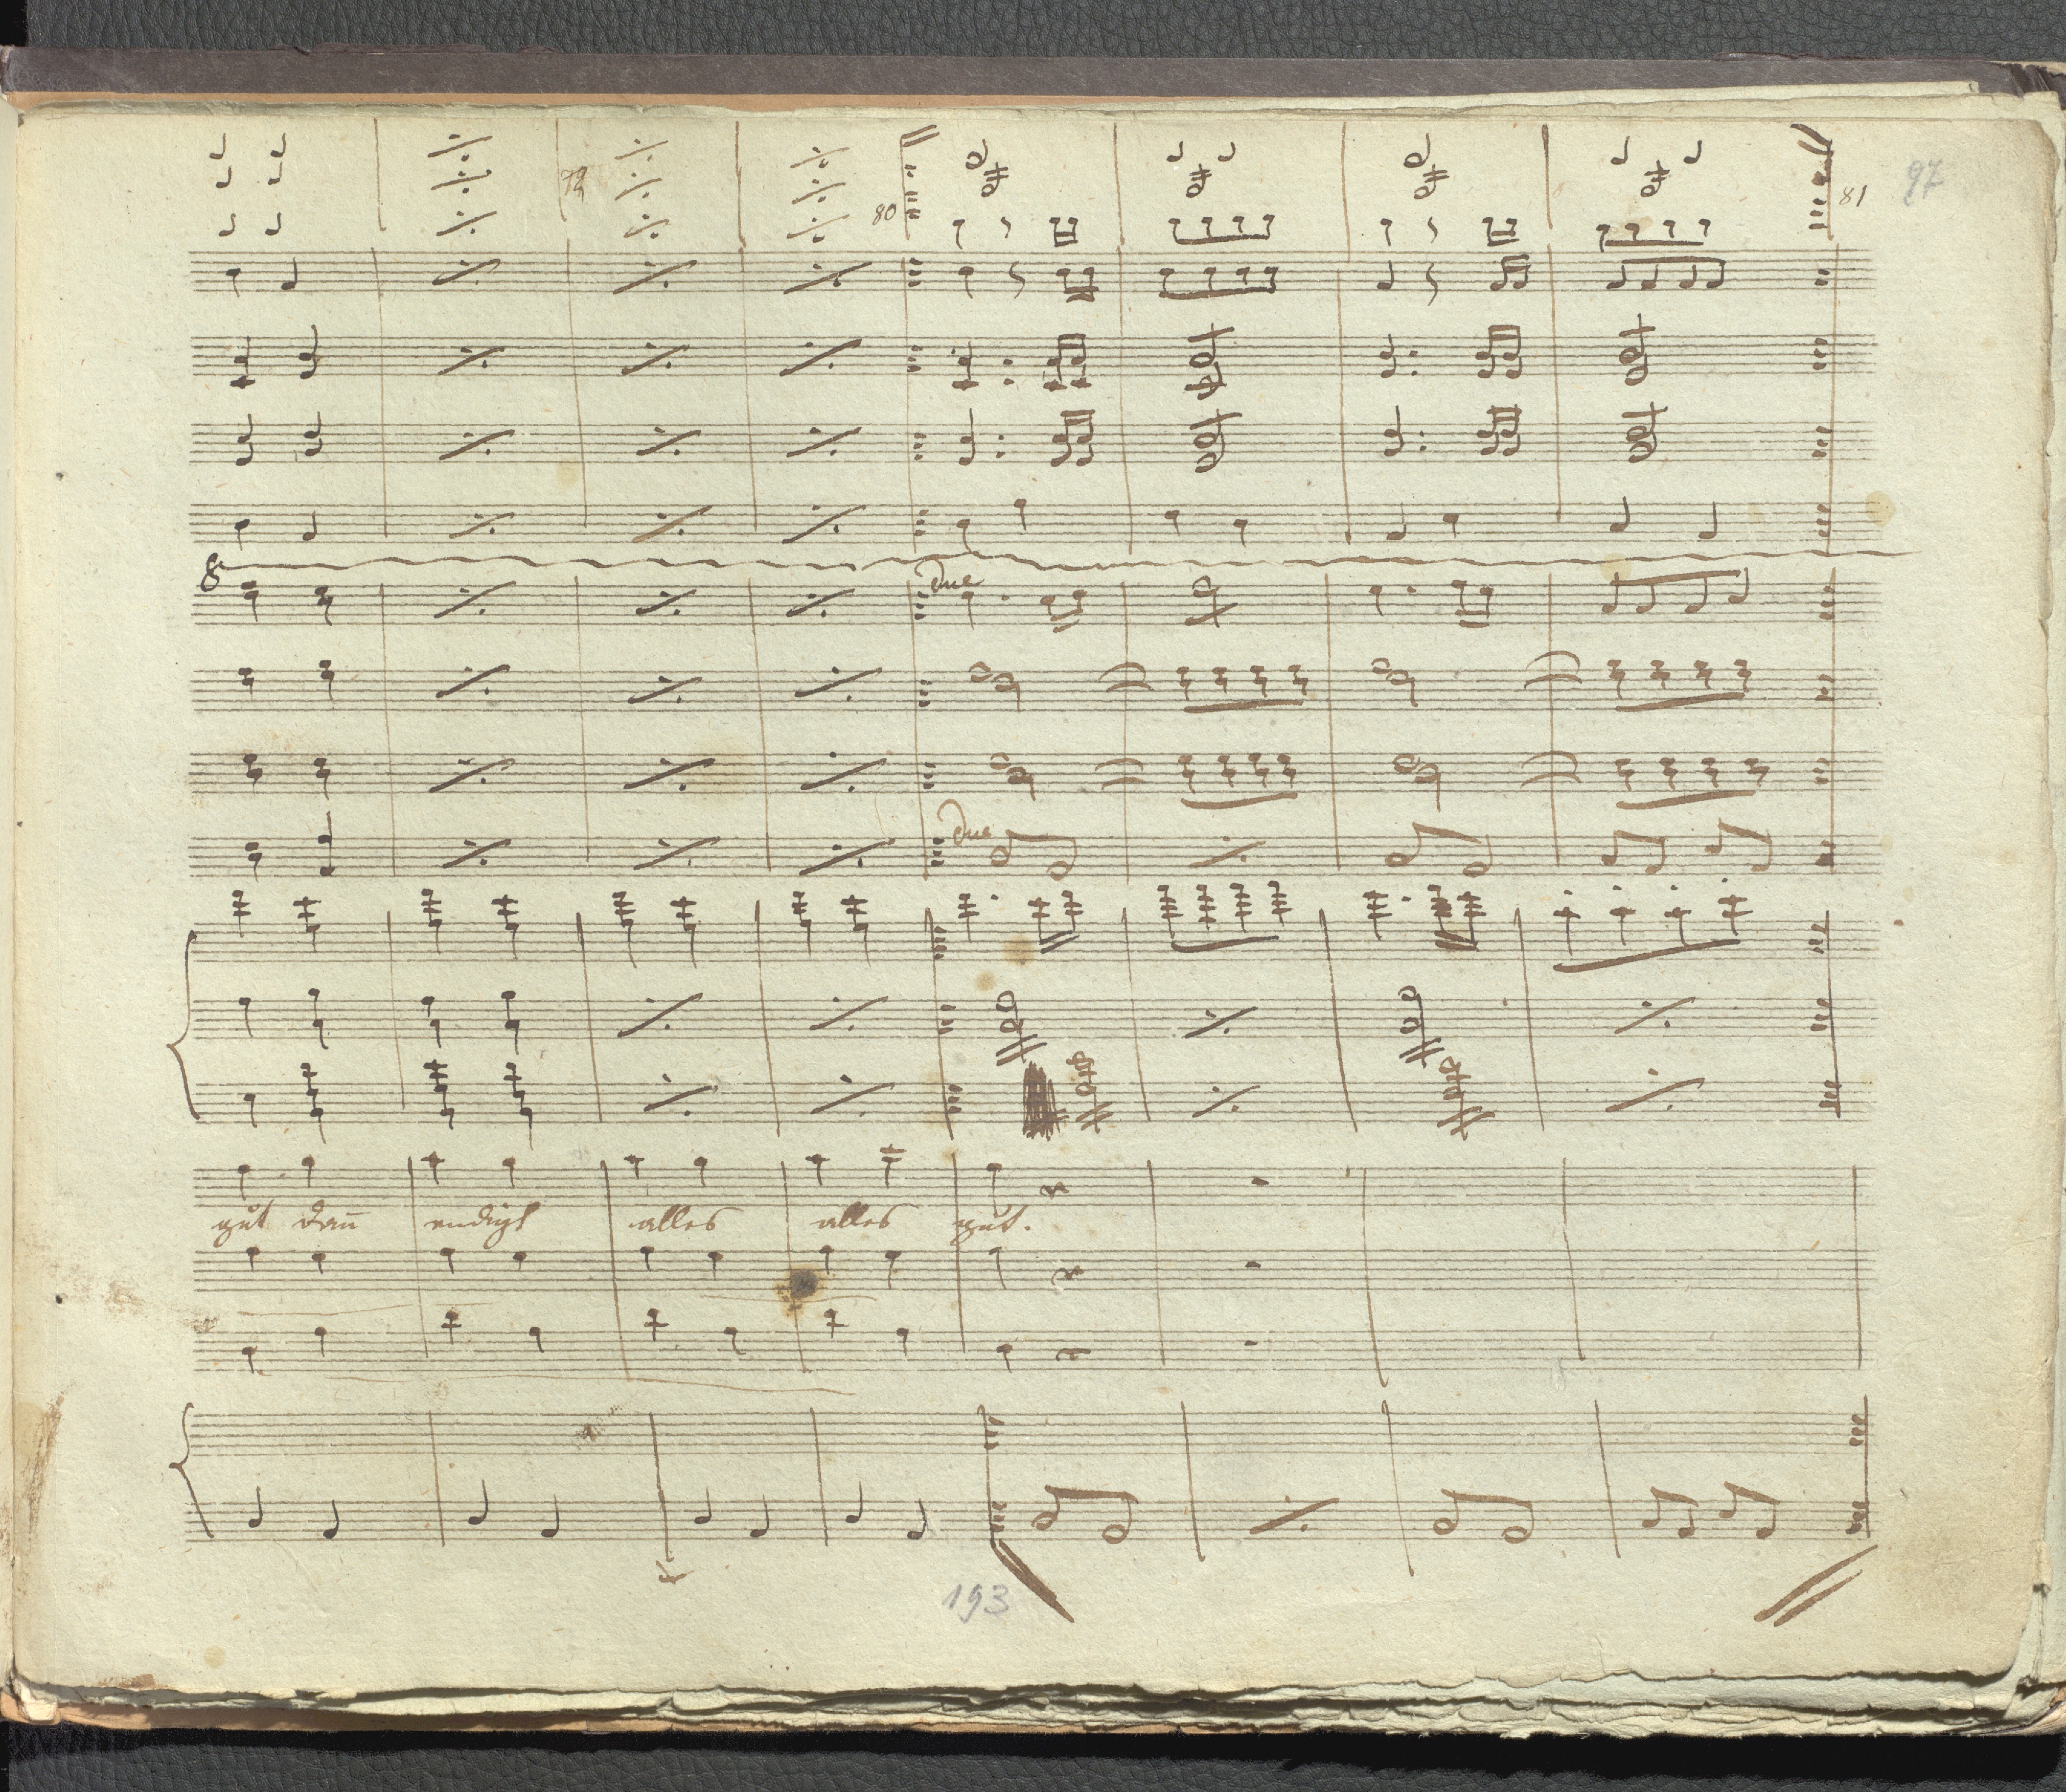 97
79
80
81
8
due
due
gut dañ endigt alles alles gut.
193